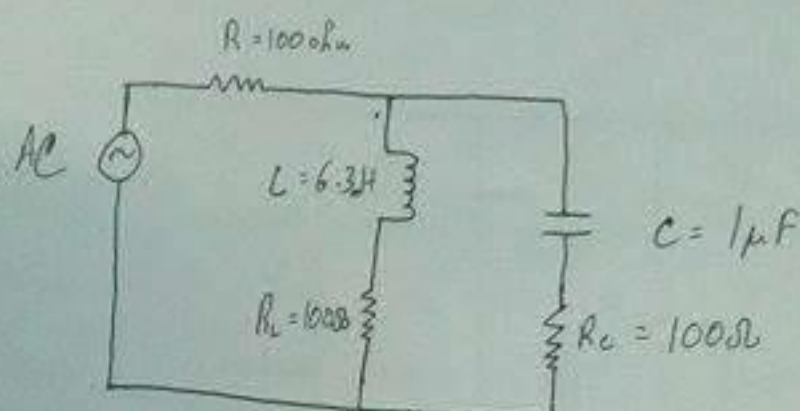 R = 100 ohm
AC
L = 6.3H
C = 1μF
R_L = 100Ω
R_c = 100Ω